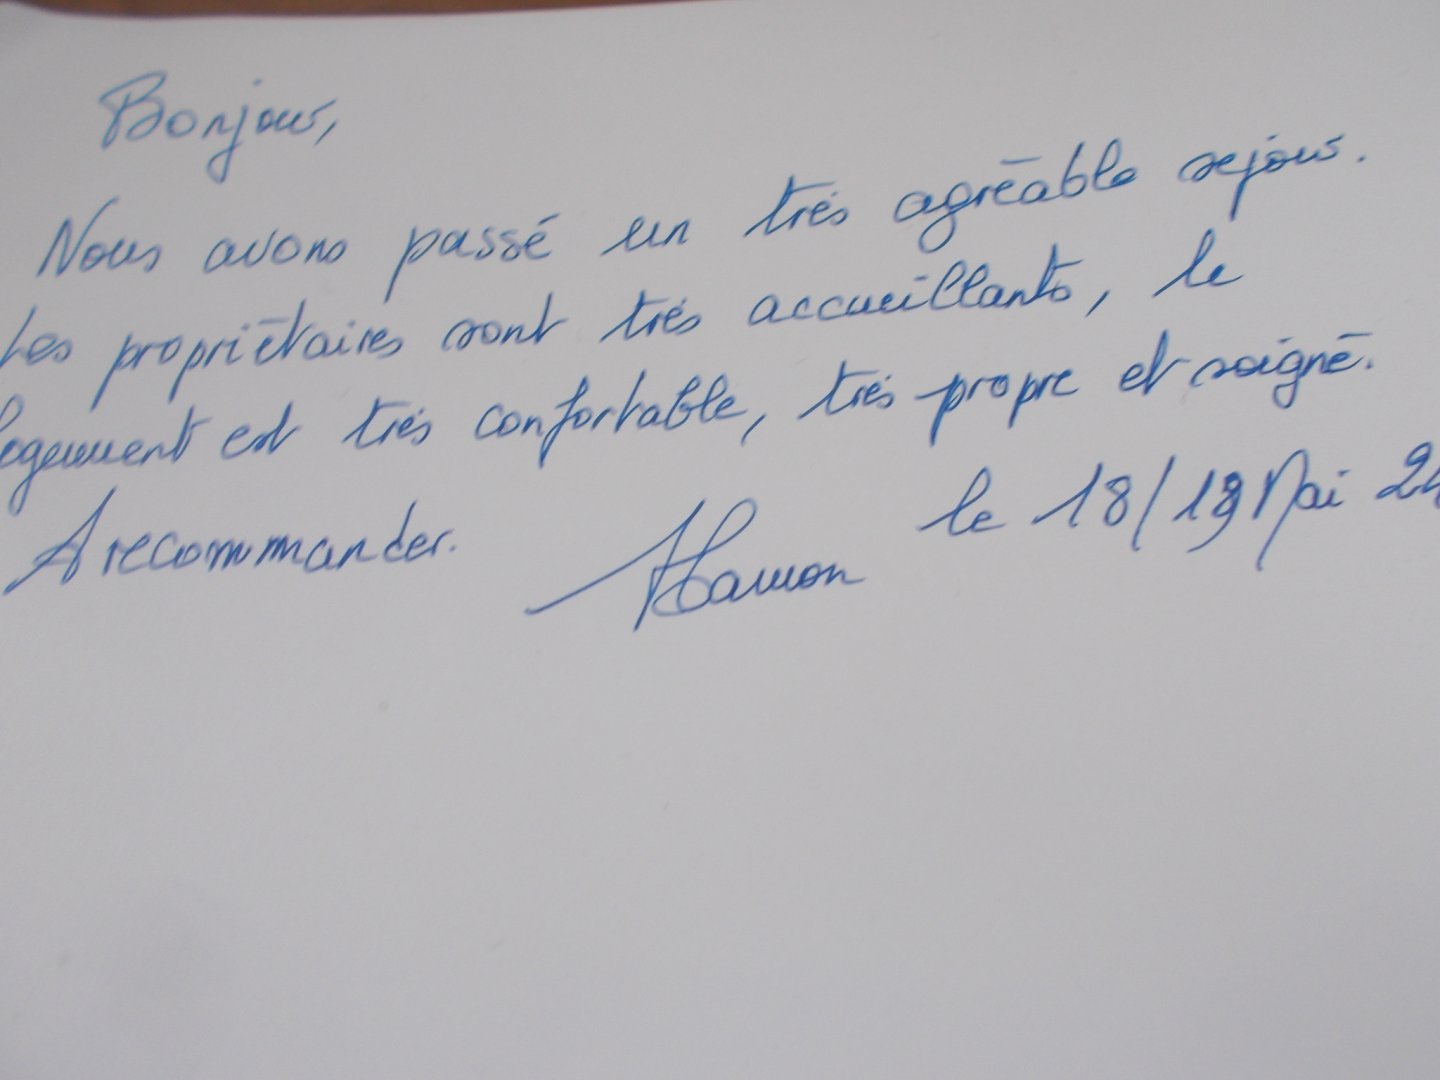 Bonjour,
Nous avons passé un très agréable sejour.
Les propriétaires sont très accueillants, le
logement est très confortable, très propre et soigné.
A recommander.
Hamon le 18/19 Mai 24